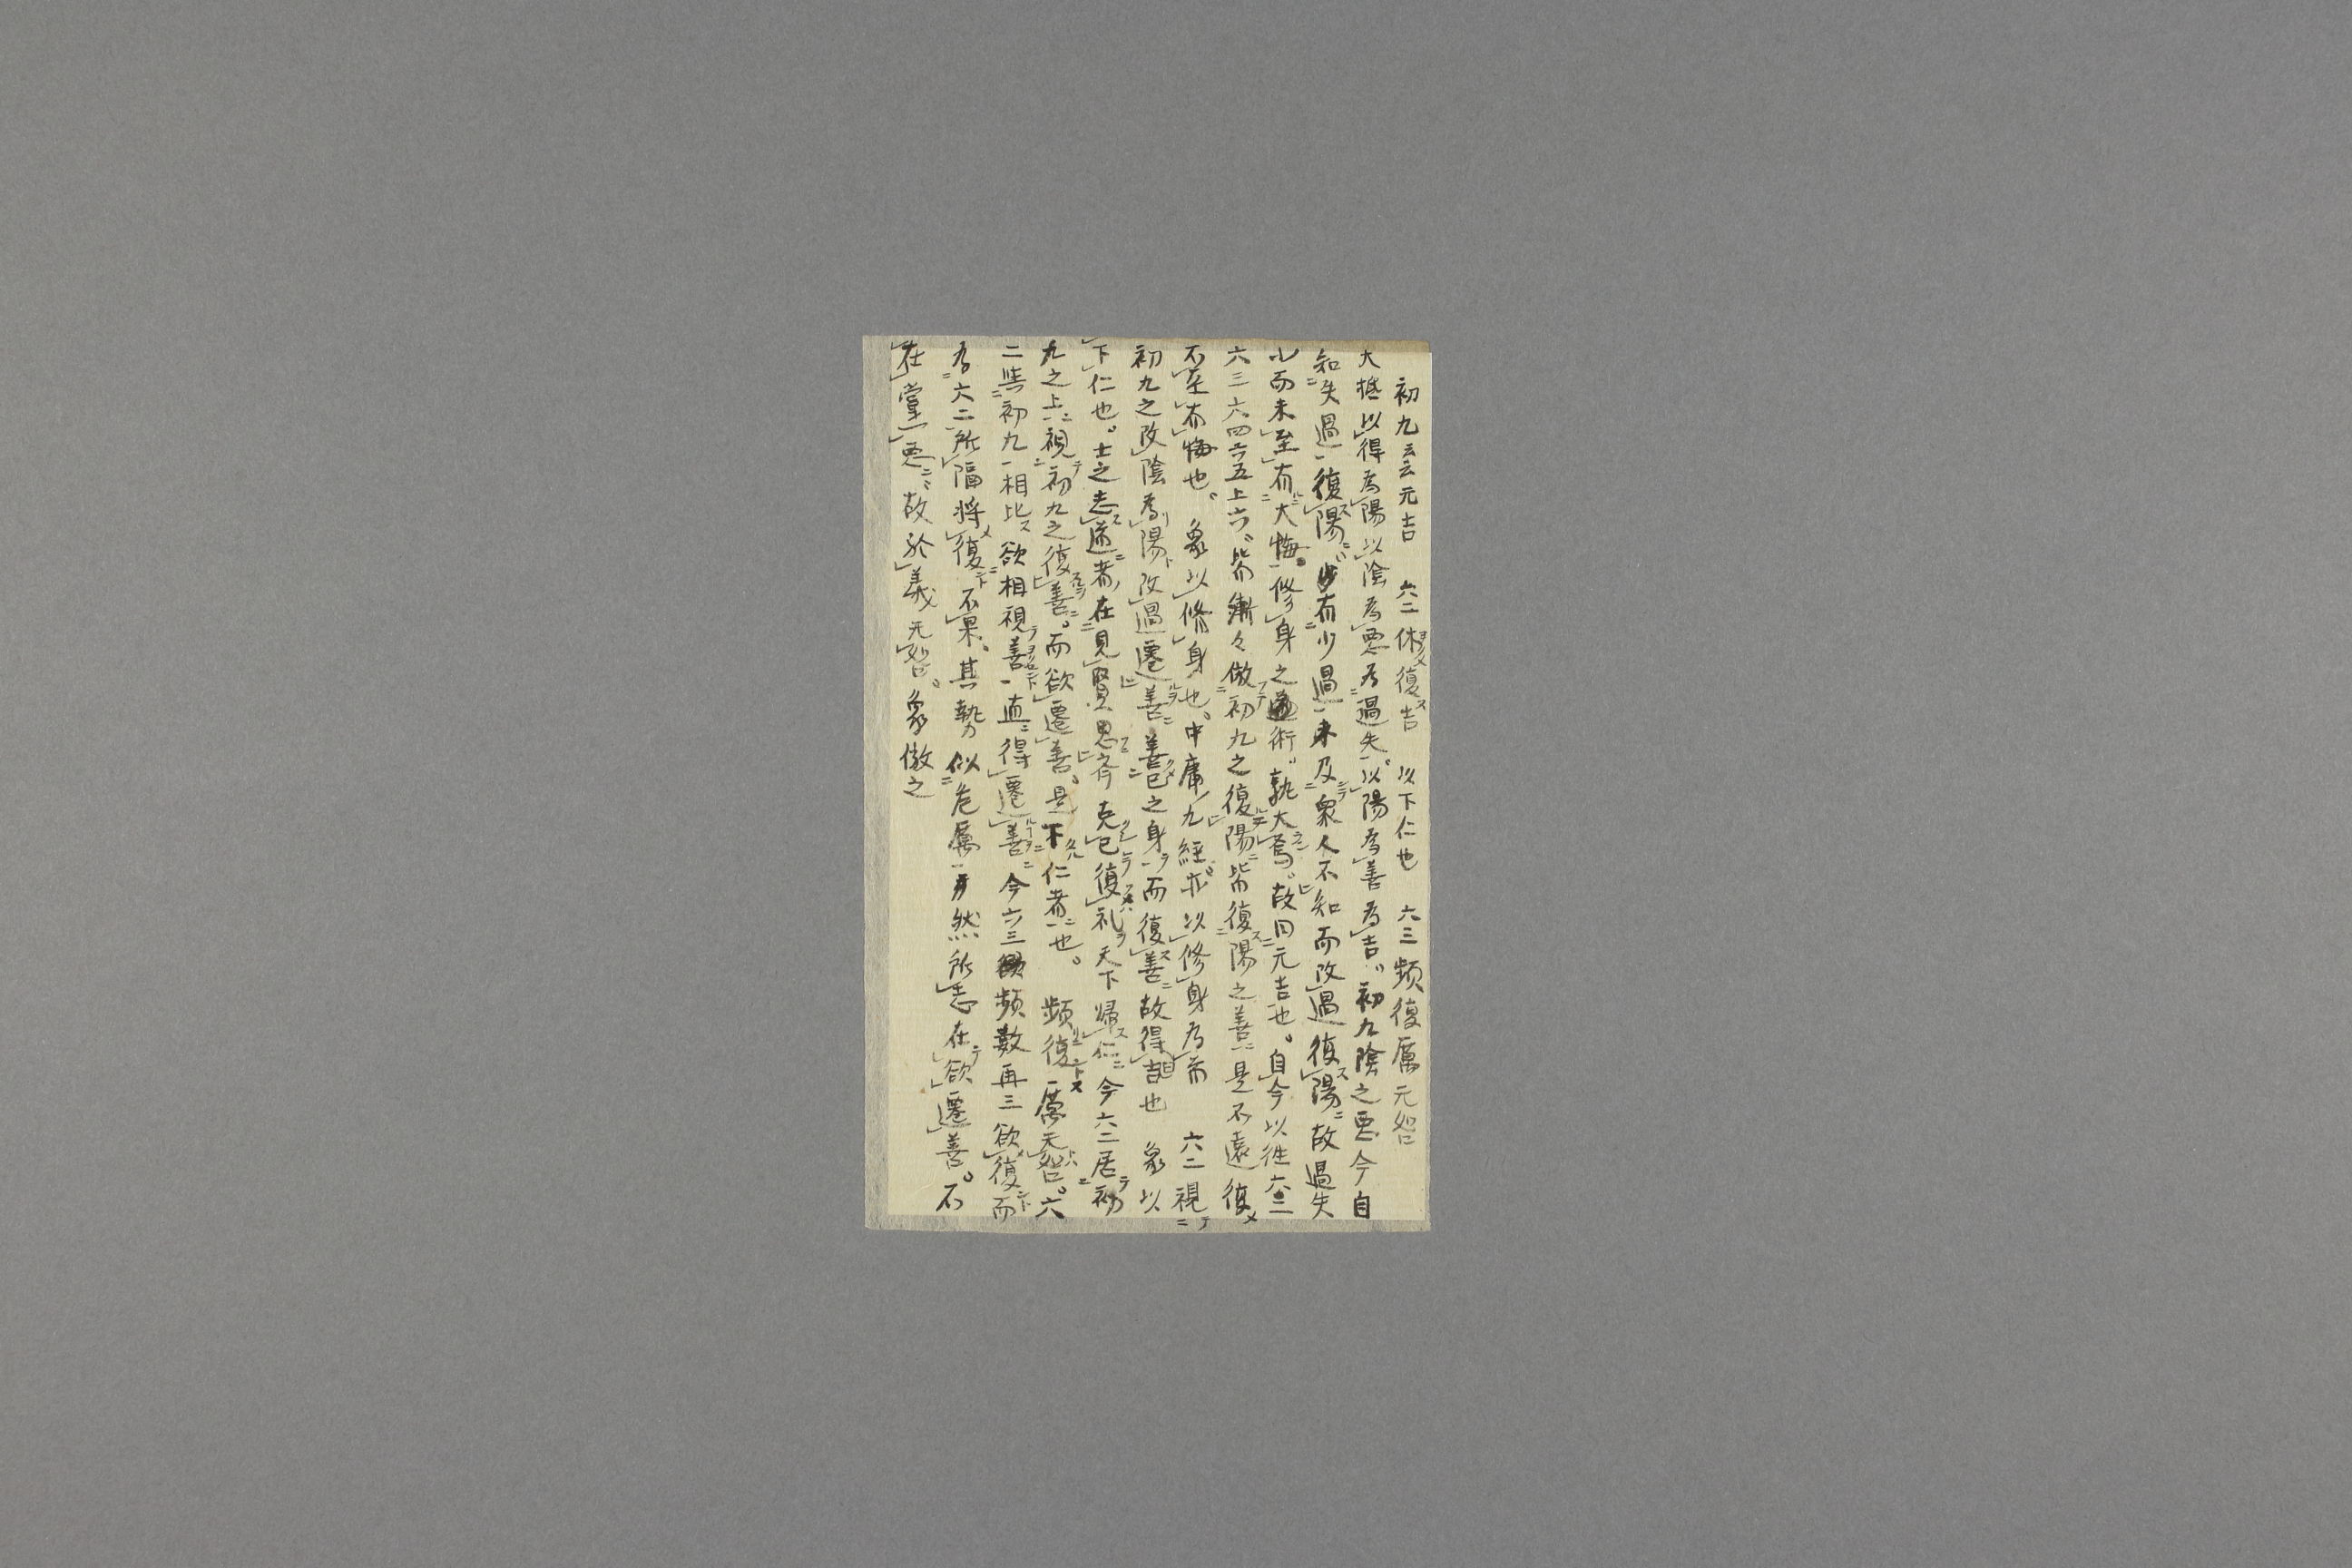 初九云云元吉　六二休復吉　以下仁也　六三頻復厲无咎
大槪以得為陽以陰為悪為過失以陽為善為吉。初九陰之悪今自
知失過復陽。有少過未及衆人不知而改過復陽故過失
小而未至有大悔。修身之術。孰大焉。故曰元吉也。自今以往六二
六三六四六五上六皆漸々倣初九之復陽皆復陽之善是不遠復
不至有悔也。象以修身也。中庸九経亦以修身為
初九之改陰為陽改過遷善善己之身而復善故得吉也　象以
下仁也。士之志道者在見賢思斉克己復礼天下帰仁今六二居初
九之上視初九之復善。而欲遷善。是下仁者也。頻復厲无咎。六
二與初九相比欲相視善直得遷善今六三頻數再三欲復而
為六二所隔将復不果。其勢似危厲然所志在欲遷善。不
在掌悪故於義无咎。象倣之